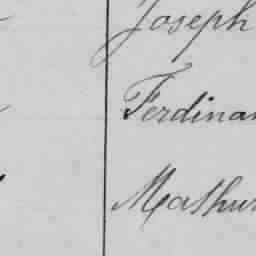 Joseph
Ferdinan
Mathur